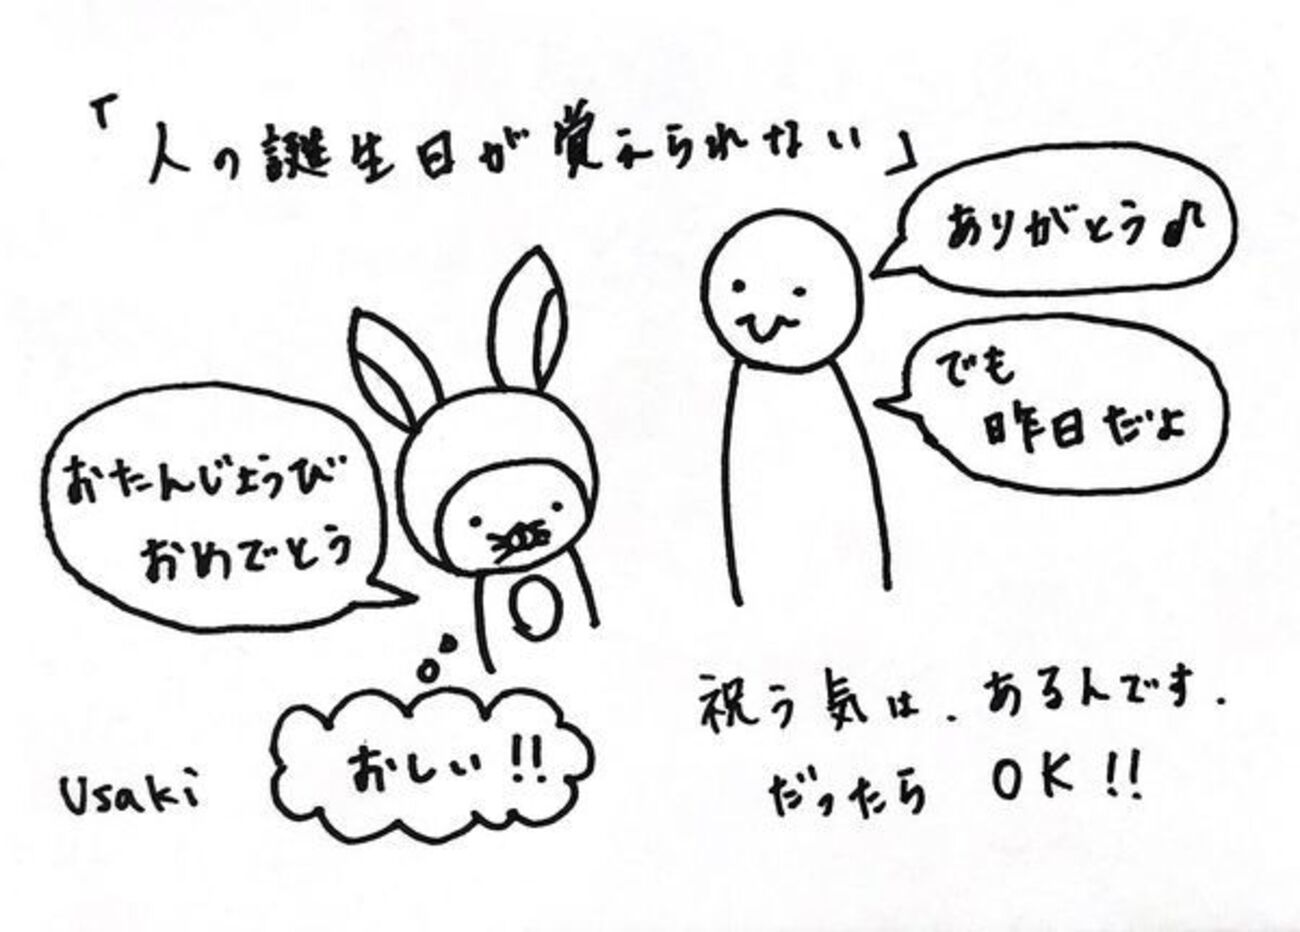 「人の誕生日が覚えられない」
おたんじょうび
おめでとう
ありがとう♪
でも
昨日だよ
おしい!!
祝う気は、あるんです.
だったら OK!!
Usaki